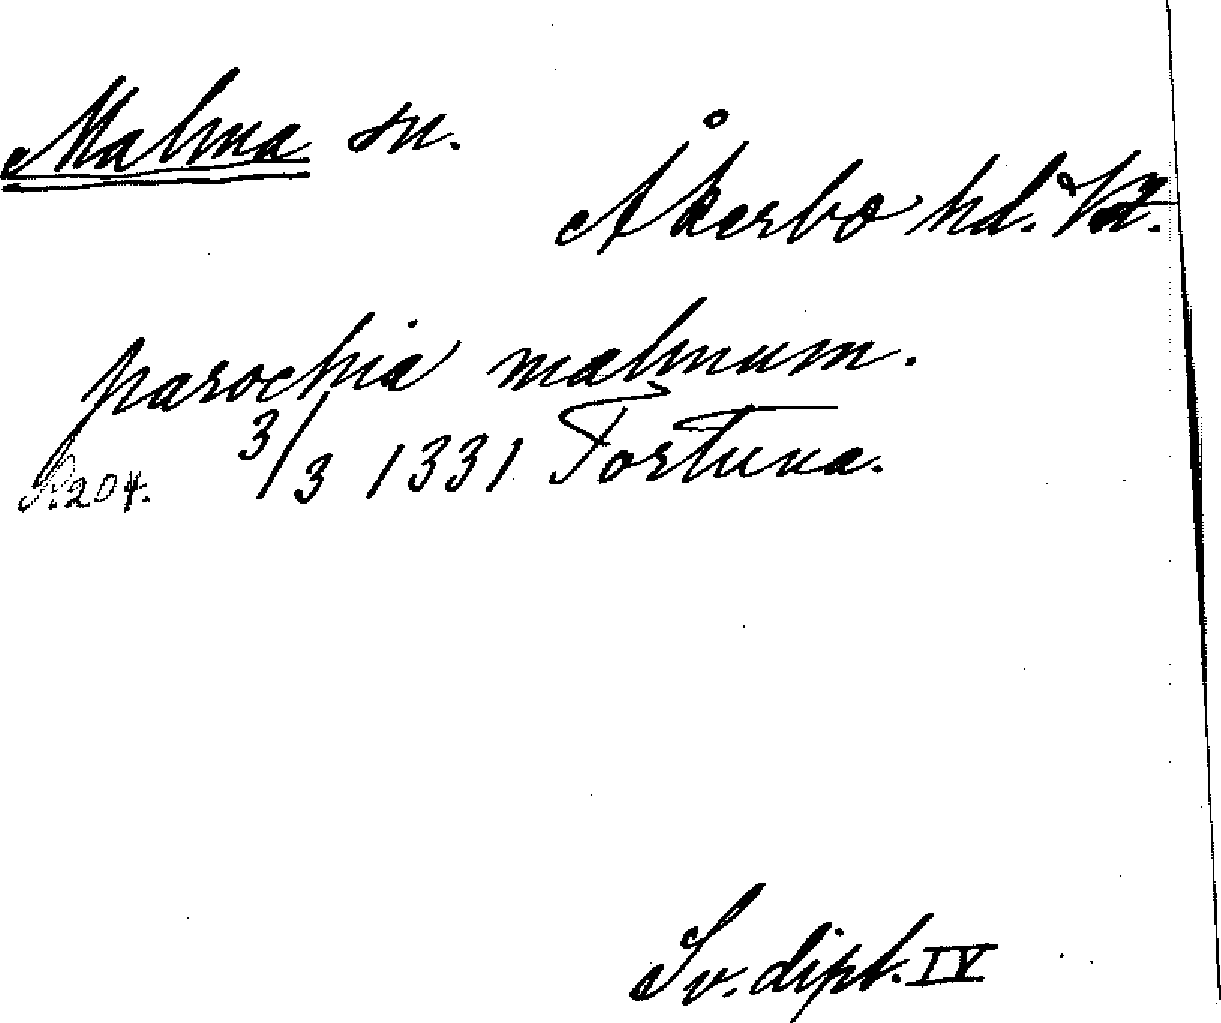 Malma sn.
Åkerbo hd. Vstm.
parochia malmum.
3/3 1331 Fortuna.
S. 204.
Sv. dipl. IV